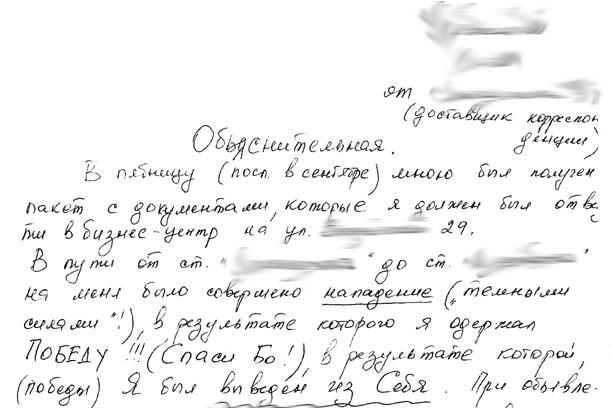 от
(доставщик корреспон
денции)
Объяснительная.
В пятницу (посл. в сентябре) мною был получен
пакет с документами, которые я должен был отвес
ти в бизнес-центр на ул. 29.
В пути от ст. " " до ст. " "
на меня было совершено нападение („темными
силами"!), в результате которого я одержал
ПОБЕДУ!!! (Спаси Бо!), в результате которой,
(победы) Я был выведен из Себя. При объявле-